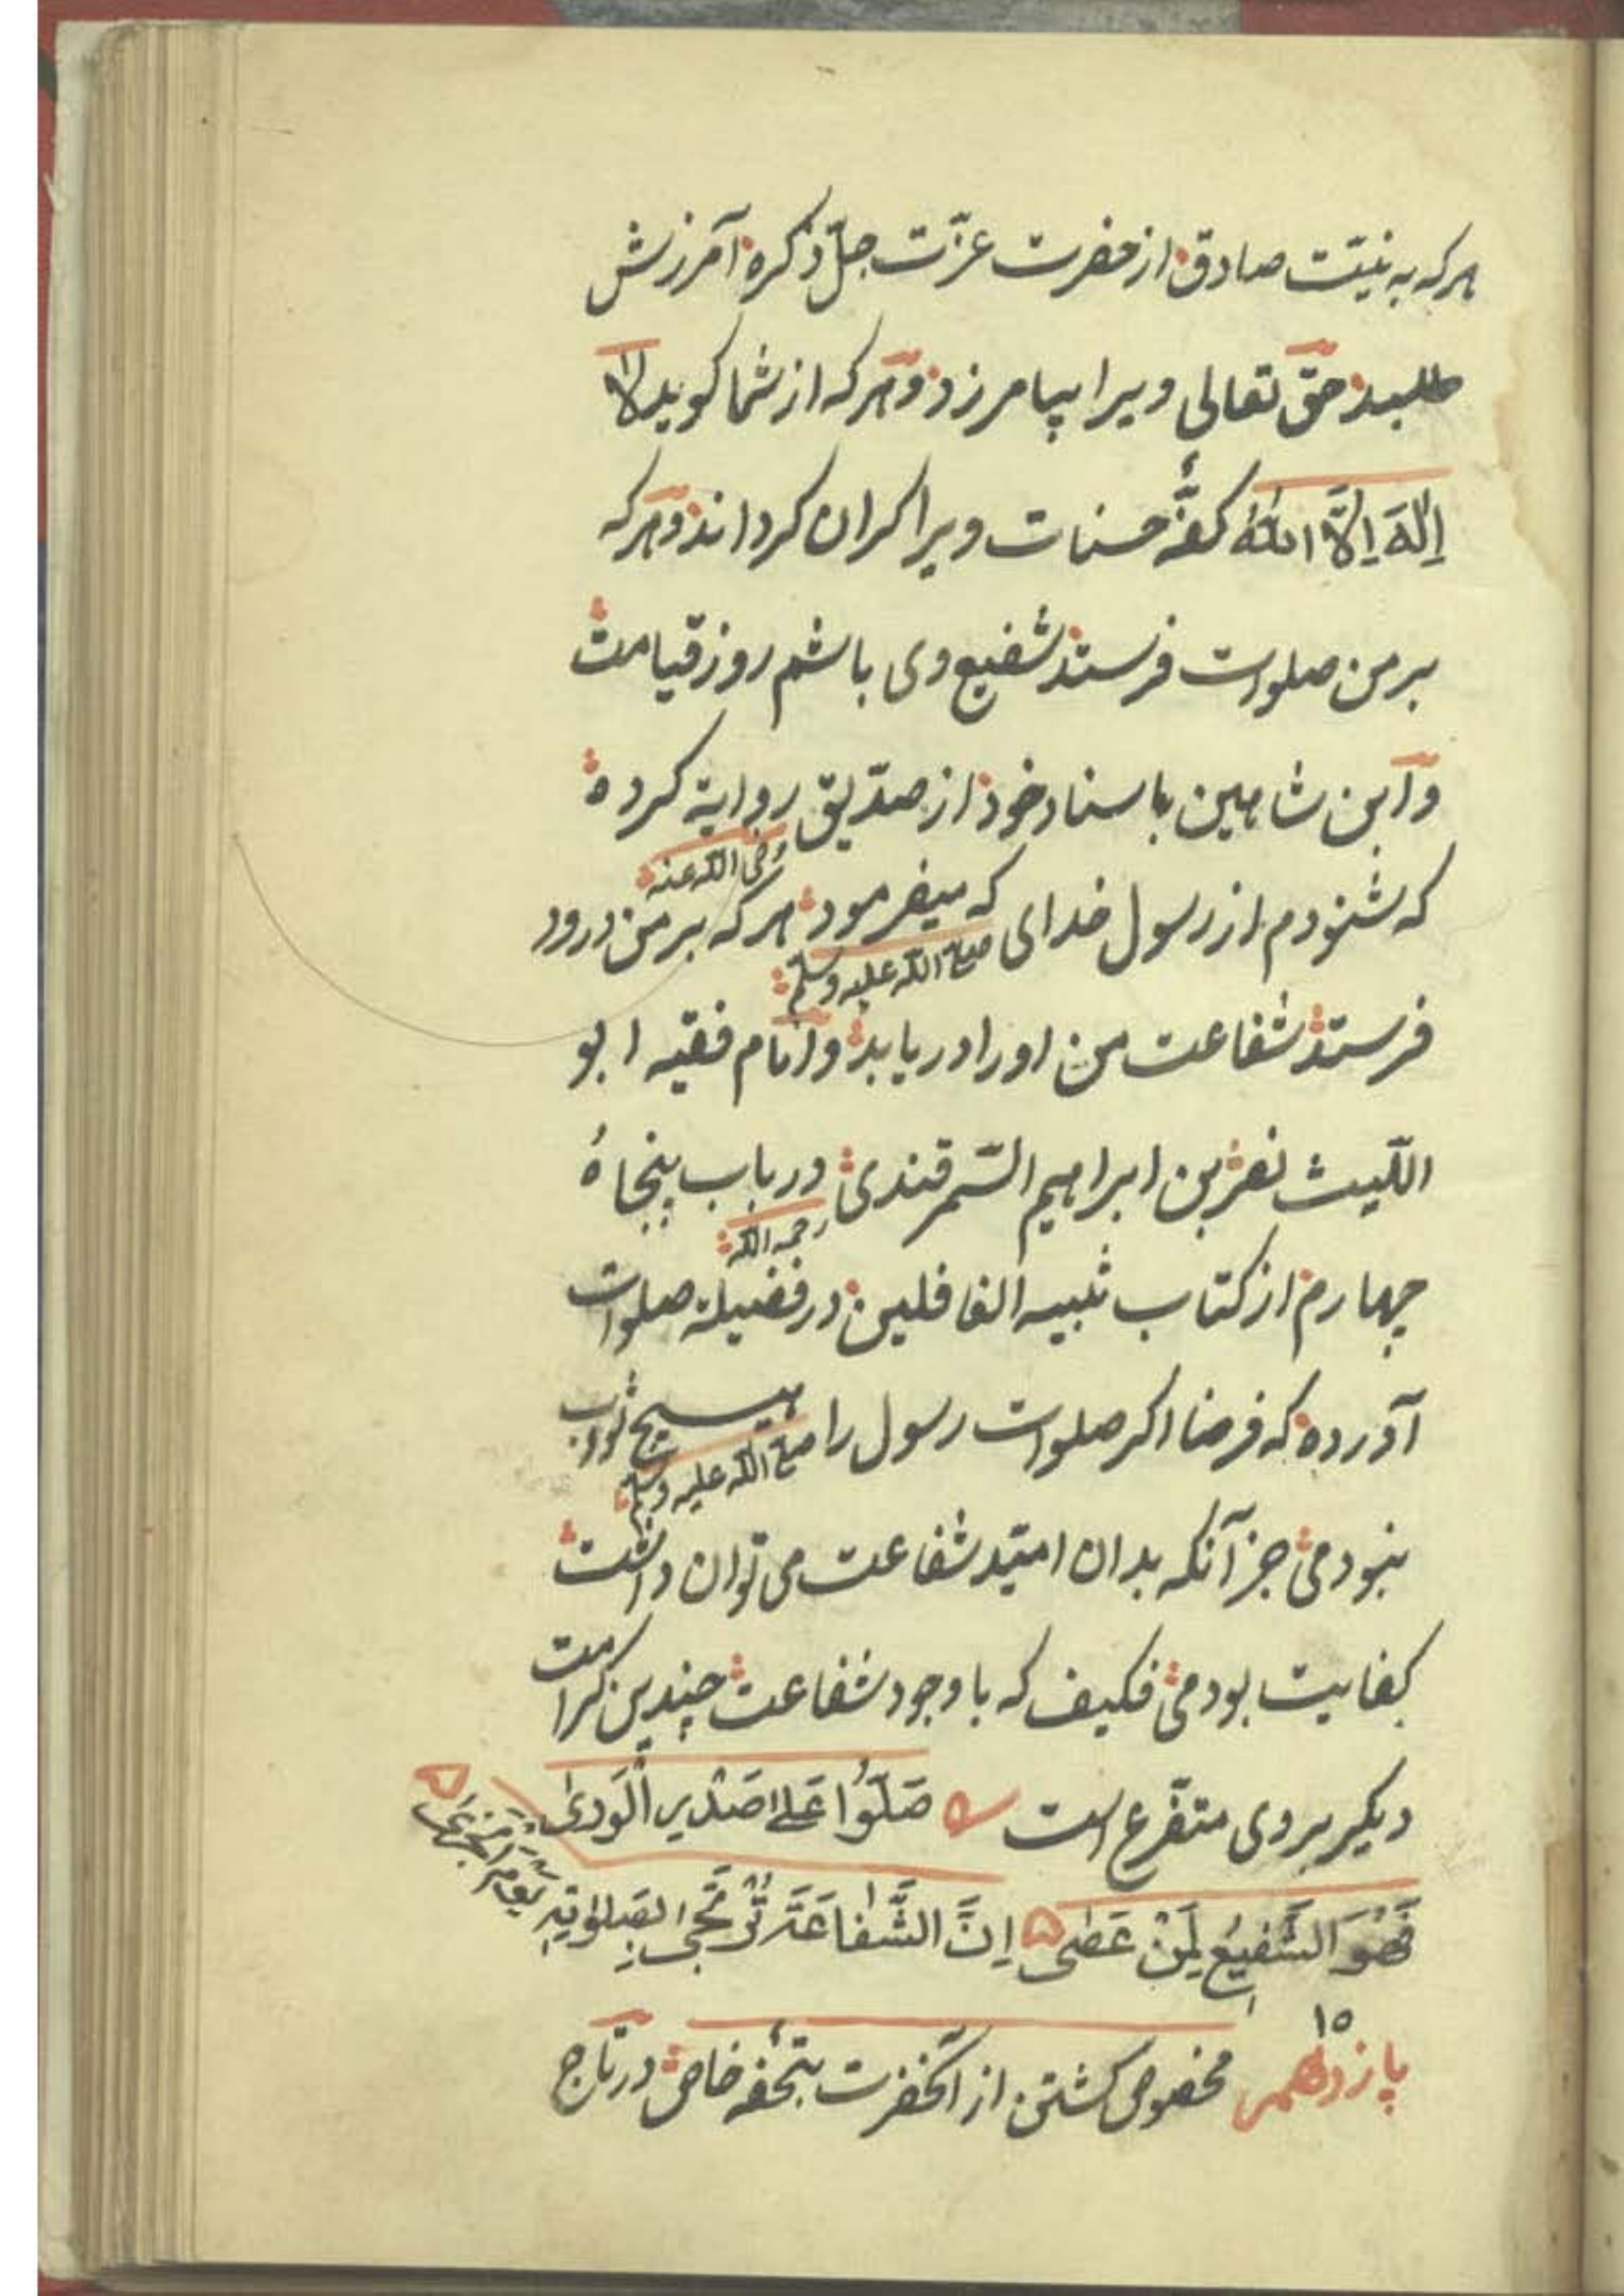 هرکه به نیّت صادق از حضرت عزّت جلّ ذکره آمرزش
طلبد حقّ تعالی ویرا بیامرزد و هرکه از شما کوید لا
اِلهَ اِلاَّ الله کفّهٔ حسنات ویرا کران کرداند و هرکه
بر من صلوات فرستد شفیع وی باشم روز قیامت
و ابن شاهین باسناد خود از صدّیق روایة کرده
رضی الله عنه
که شنودم از رسول خدای که میفرمود هرکه بر من درود
صلی الله علیه وسلم
فرستد شفاعت من اورا دریابد و امام فقیه ابو
اللّیث نصر بن ابراهیم السّمرقندی در باب پنجاهُ
رحمه الله
چهارم از کتاب تنبیه الغافلین در فضیلة صلوات
آورده که فرضا اکر صلوات رسول را هیچ ثواب
صلی الله علیه وسلم
نبودمی جز آنکه بدان امیّد شفاعت می توان داشت
کفایت بودمی فکیف که با وجود شفاعت چندین کرامت
دیکر بروی متفّرع است صَلّوُا عَلی صَدْرِ الْوَریٰ
فَهْوَ الشَّفیعُ لِمَنْ عَصٰی اِنَّ الشَّفاعَةَ تُرْتَجی بِالصَّلٰوةِ
۱۵
پازدهم مخصوص کشتن از آنحضرت بتحفهٔ خاص در تاج